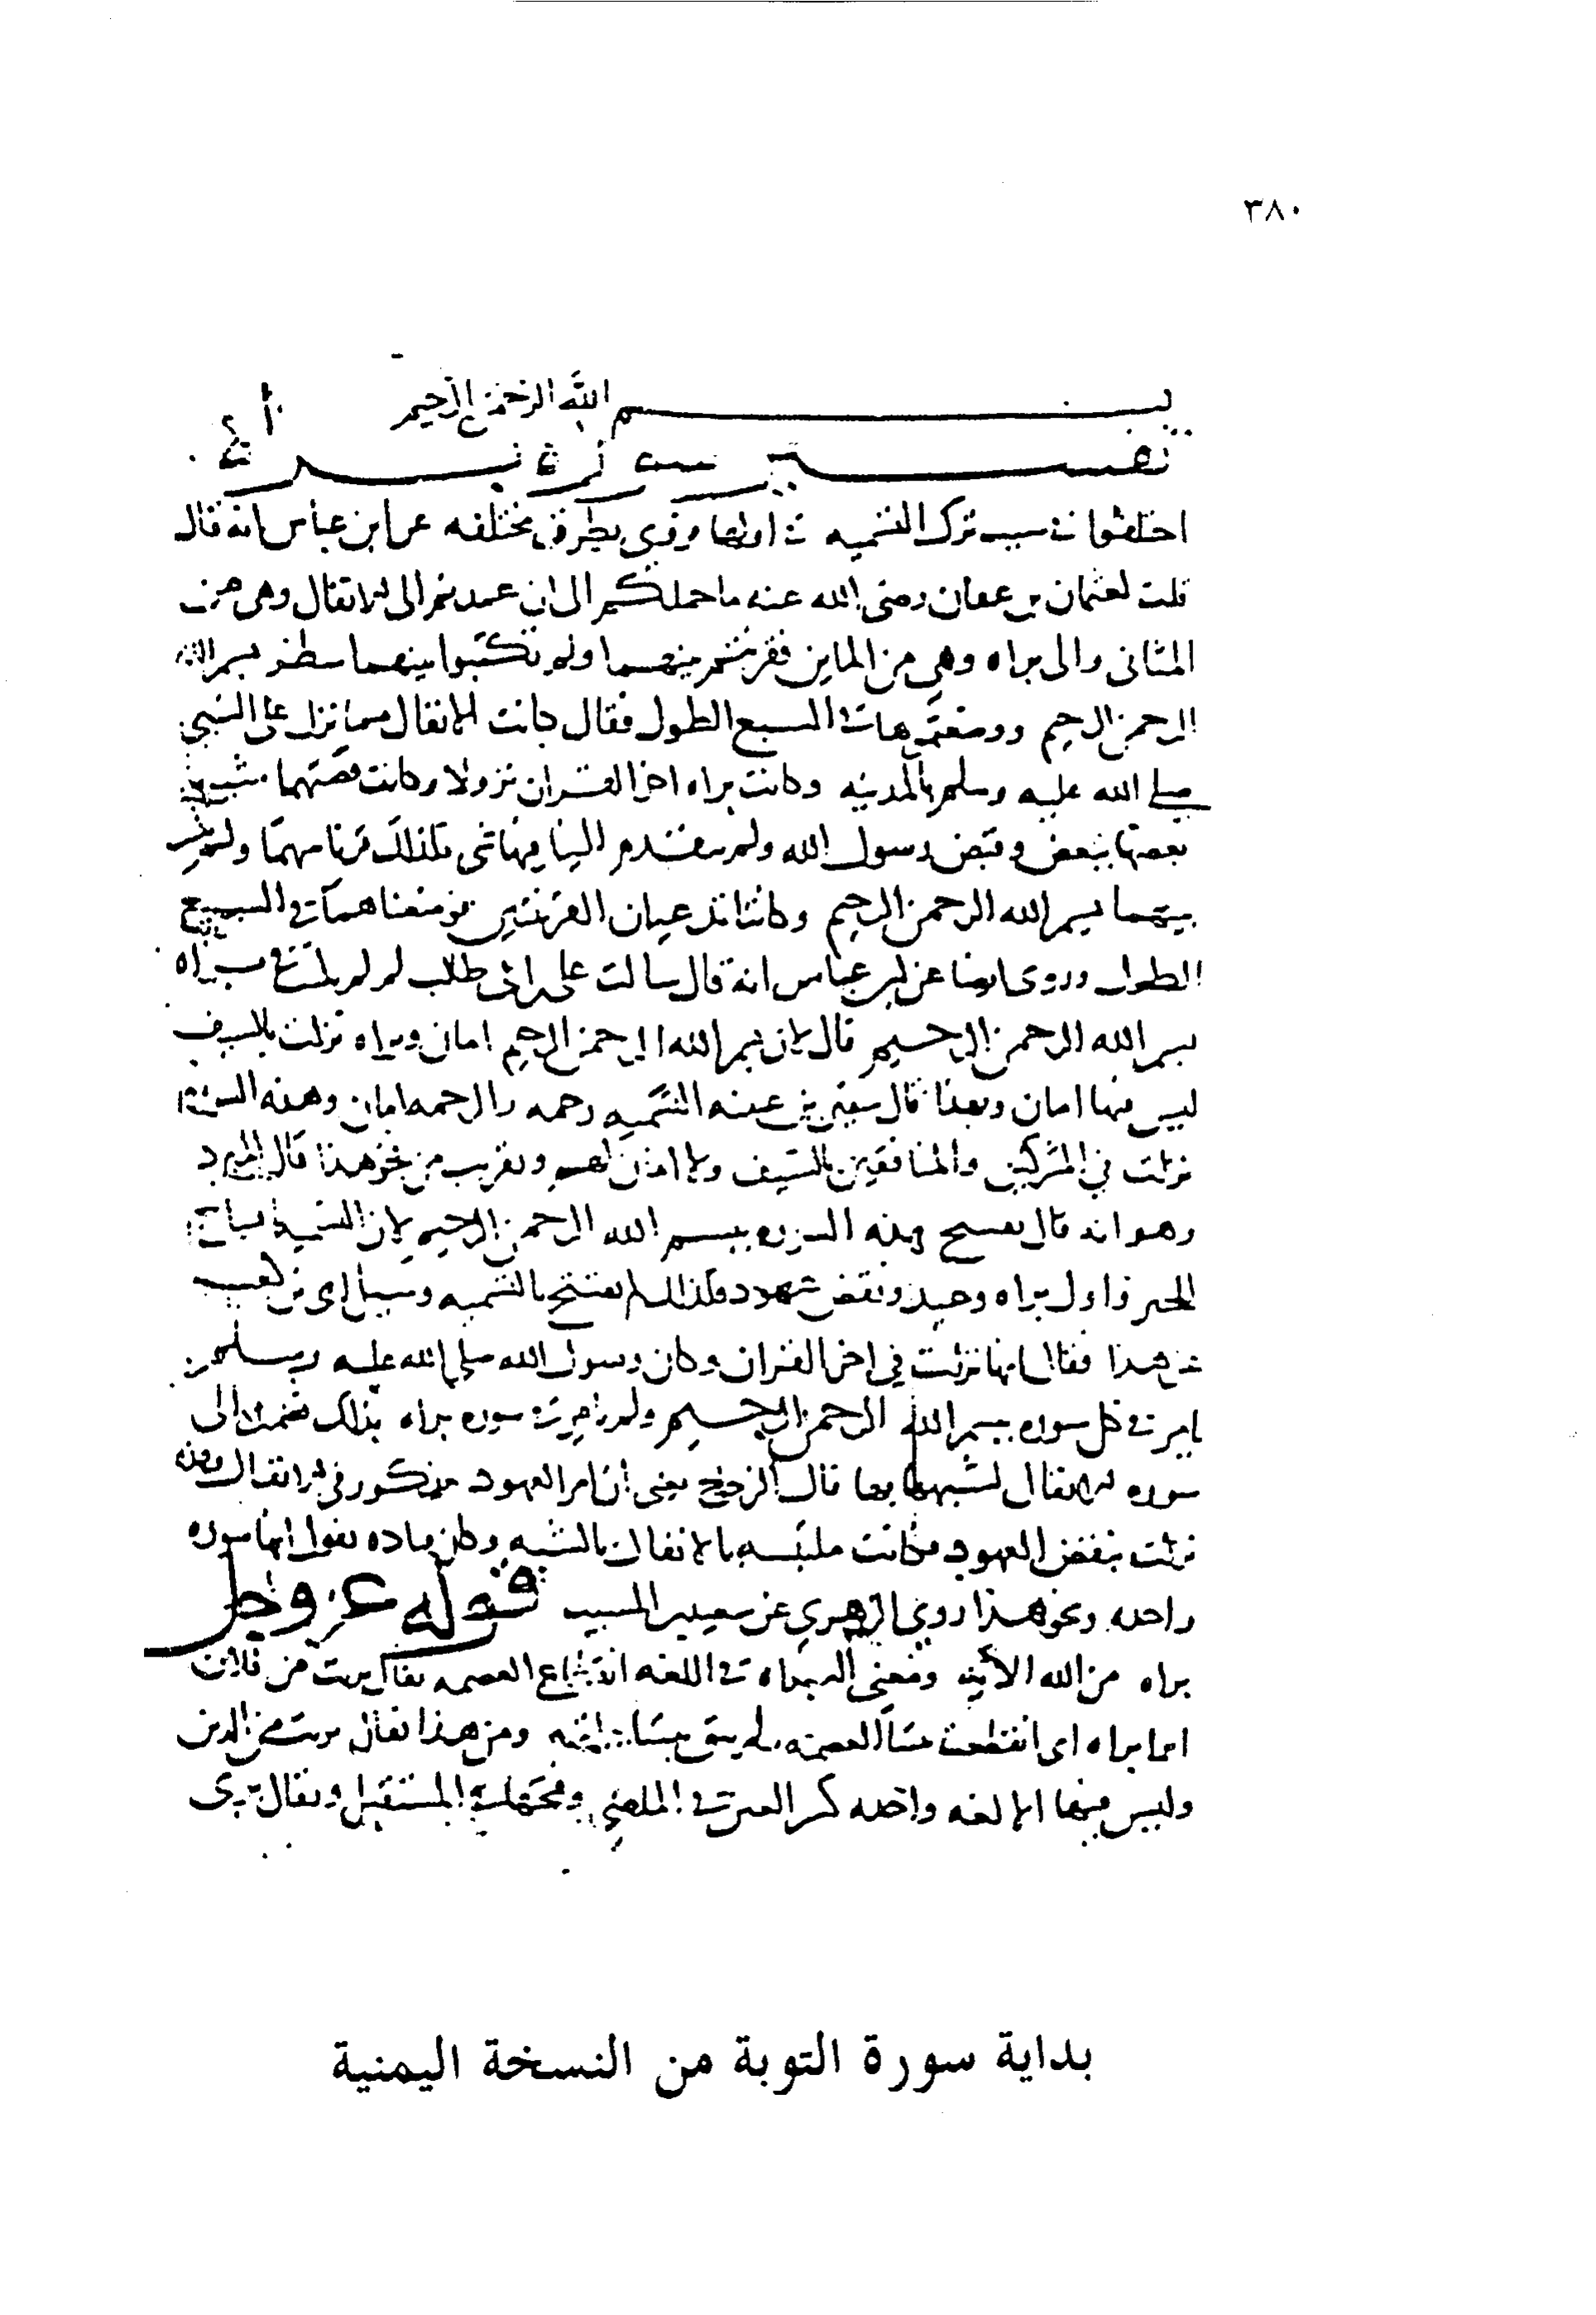 ٣٨٠
بسم الله الرحمن الرحيم
تفسير سورة براءة
اختلفوا في سبب ترك التسميه في اولها وروي بطرق مختلفه عن ابن عباس انه قال
قلت لعثمان بن عفان رضى الله عنه ما حملكم الى ان عمدتم الى الانفال وهى من
المثانى والى براه وهي من الماين فقرنتم بينهما ولم تكتبوا بينهما سطر بسم الله
الرحمن الرحيم ووضعتموها في السبع الطول فقال كانت الانفال مما نزل على النبي
صلى الله عليه وسلم بالمدينه وكانت براه اخر القران نزولا وكانت قصتهما شبيهة
بعضها ببعض وقبض رسول الله ولم يتقدم الينا فيها شى فلذلك قرنا بينهما ولم
بينهما بسم الله الرحمن الرحيم وكانتا تدعيان القرينتين فوضعناهما في السبع
الطول وروى ايضا عن ابن عباس انه قال سالت على بن ابى طالب لم لم في براه
بسم الله الرحمن الرحيم قال لان بسم الله الرحمن الرحيم امان وبراه نزلت بالسيف
ليس فيها امان وبهذا قال التسميه رحمه والرحمه امان وهذه السورة
نزلت في المشركين والمنافقين بالسيف ولا امان لهم وقريب من نحو هذا قال المبرد
وهو انه قال هذه السوره ببسم الله الرحمن الرحيم لان التسميه
الخير واول براه وعيد ونقض عهود فلذلك لم تفتتح بالتسميه وسيل ابى بن كعب
عن هذا فقال انها نزلت في اخر القران وكان رسول الله صلى الله عليه وسلم
يامر في كل سوره ببسم الله الرحمن الرحيم ولم يامر في سوره براه بذلك فضمت الى
سوره الانفال لشبهها بها قال الزجاج يعنى ان امر العهود مذكور في الانفال وهذه
نزلت بنقض العهود فكانت ملتبسه بالانفال بالشبه وكان قتاده يقول انها سوره
واحده ونحو هذا روي الزهري عن سعيد بن المسيب قوله عز وجل
براه من الله الآيه ومعنى البراه في اللغه انقطاع العصمه يقال بريت من فلان
ابرا براه اى انقطعت بيننا العصمه ولم يبق بيننا ومن هذا يقال بريت من الدين
وليس فيها الا لغه واحده كسر العين في الماضي وفتحها في المستقبل ويقال برى
بداية سورة التوبة من النسخة اليمنية